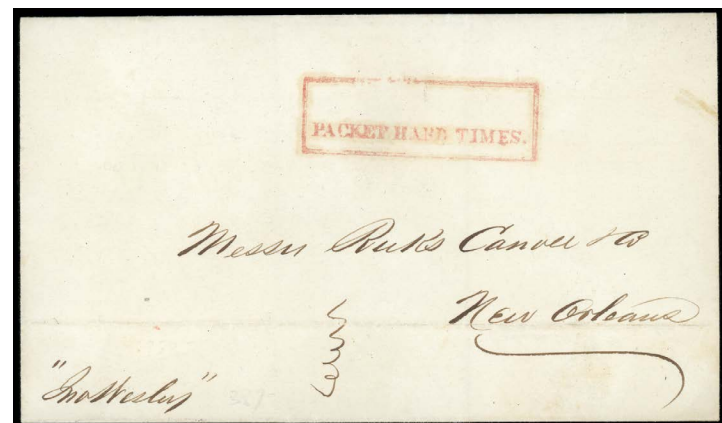 PACKET HARD TIMES.
Messrs Ruks & Co
New Orleans
"Jno Wesley"